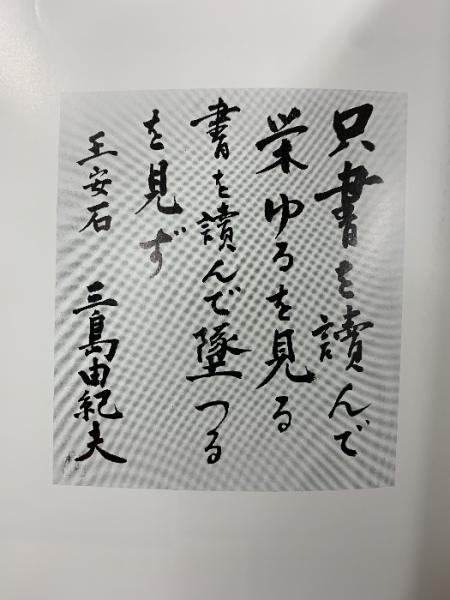 只書を讀んで
栄ゆるを見る
書を讀んで墜つる
を見ず
王安石
三島由紀夫